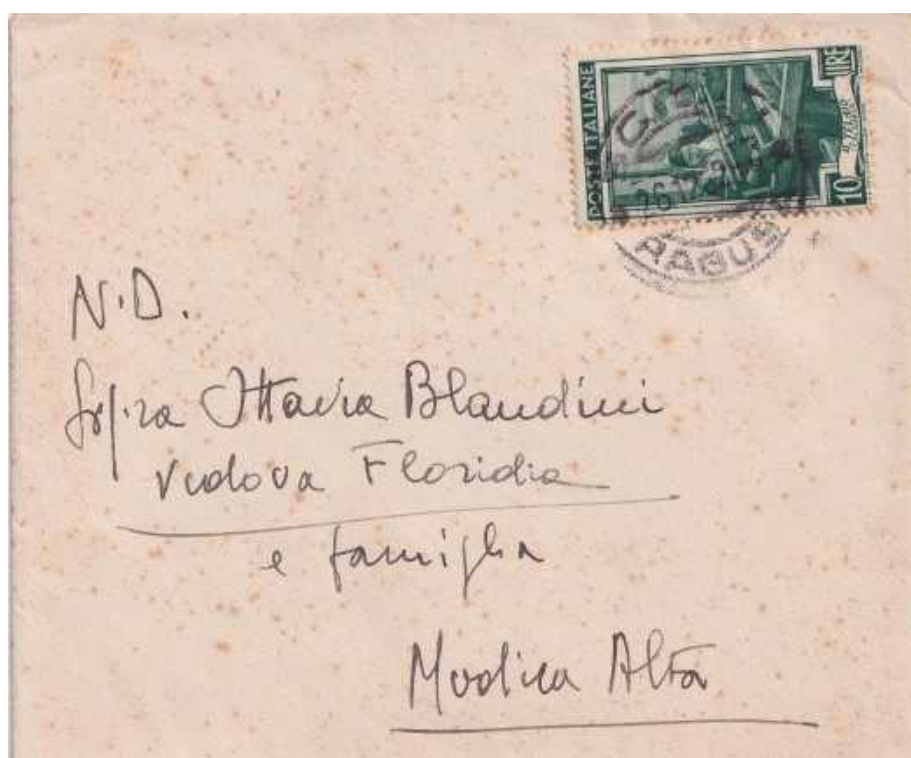 POSTE ITALIANE
10 LIRE
RAGUSA
N.D.
Sig.ra Ottavia Blandini
vedova Floridia
e famiglia
Modica Alta